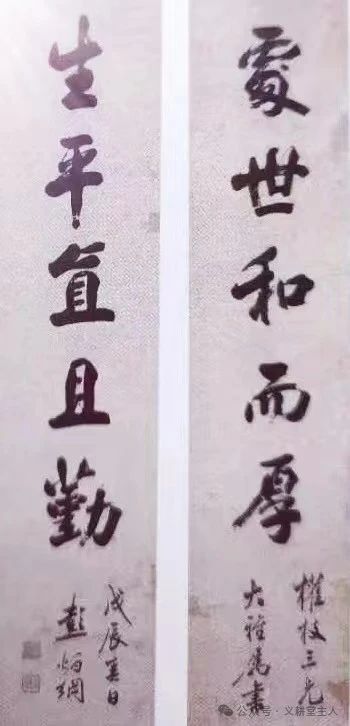 處世和而厚
權枝三兄
大雅屬書
生平直且勤
戊辰夏日
彭炳綱
公众号·义耕堂主人